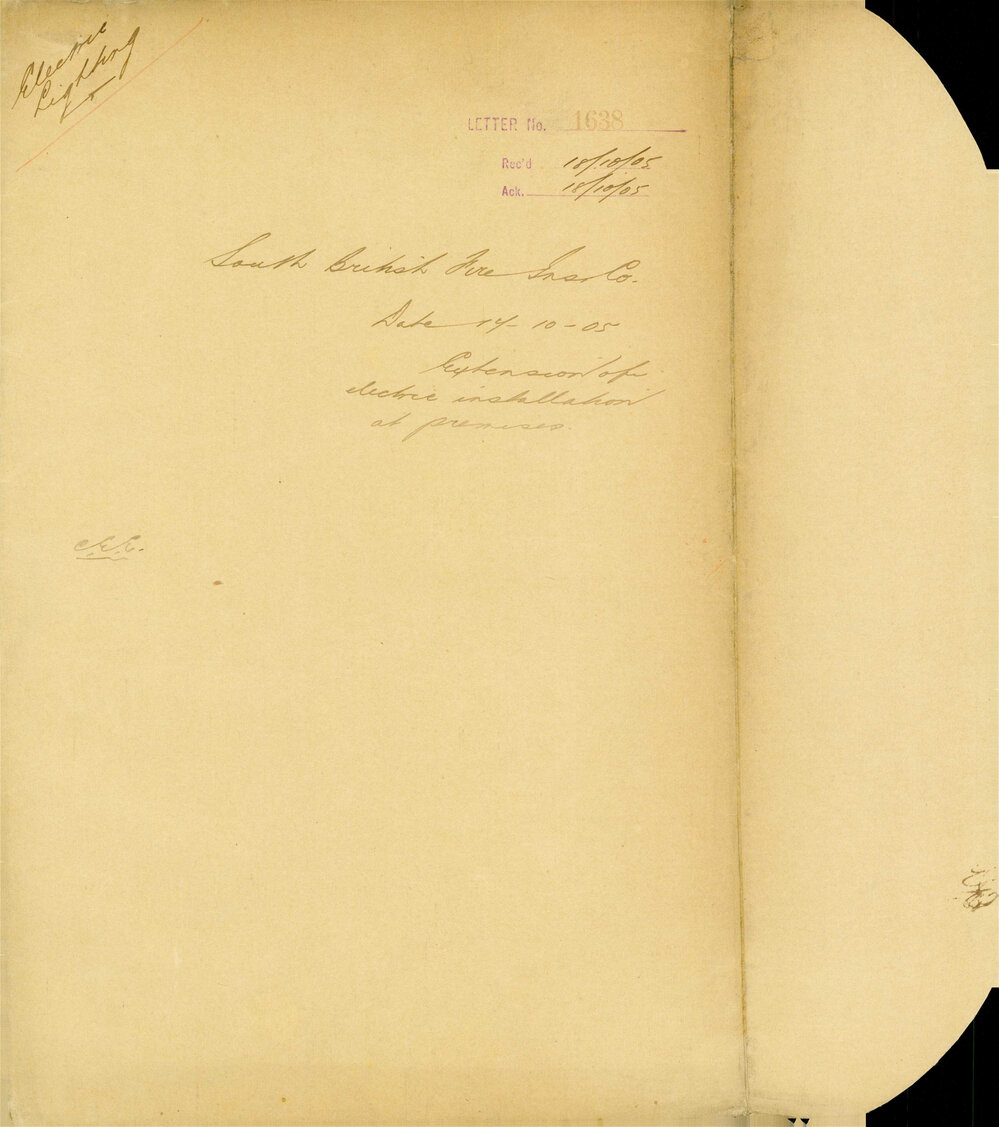 Electric
Lighting
LETTER No. 1638
Rec'd 18/10/05
Ack. 18/10/05
South British Fire Ins. Co.
Date 14-10-05
Extension of
electric installation
at premises.